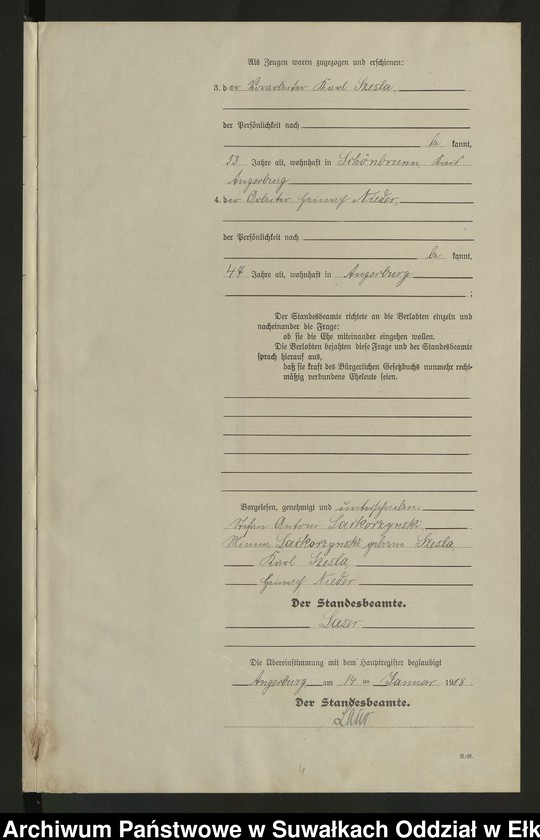 Als Zeugen waren zugezogen und erschienen:
3. der Vorarbeiter Karl Szesla,
der Persönlichkeit nach
be kannt,
53 Jahre alt, wohnhaft in Schönbrunn, Kreis
Angerburg
4. der Arbeiter Heinrich Nieder,
der Persönlichkeit nach
be kannt,
47 Jahre alt, wohnhaft in Angerburg
;
Der Standesbeamte richtete an die Verlobten einzeln und
nacheinander die Frage:
ob sie die Ehe miteinander eingehen wollen.
Die Verlobten bejahten diese Frage und der Standesbeamte
sprach hierauf aus,
daß sie kraft des Bürgerlichen Gesetzbuchs nunmehr recht-
mäßig verbundene Eheleute seien.
Vorgelesen, genehmigt und unterschrieben
Stefan Antoni Saikorzynski
Minna Saikorzynski geborne Szesla,
Karl Szesla,
Heinrich Nieder
Der Standesbeamte.
Laser
Die Übereinstimmung mit dem Hauptregister beglaubigt
Angerburg am 14 ten Januar 1918.
Der Standesbeamte.
E.-R.
Archiwum Państwowe w Suwałkach Oddział w Ełk